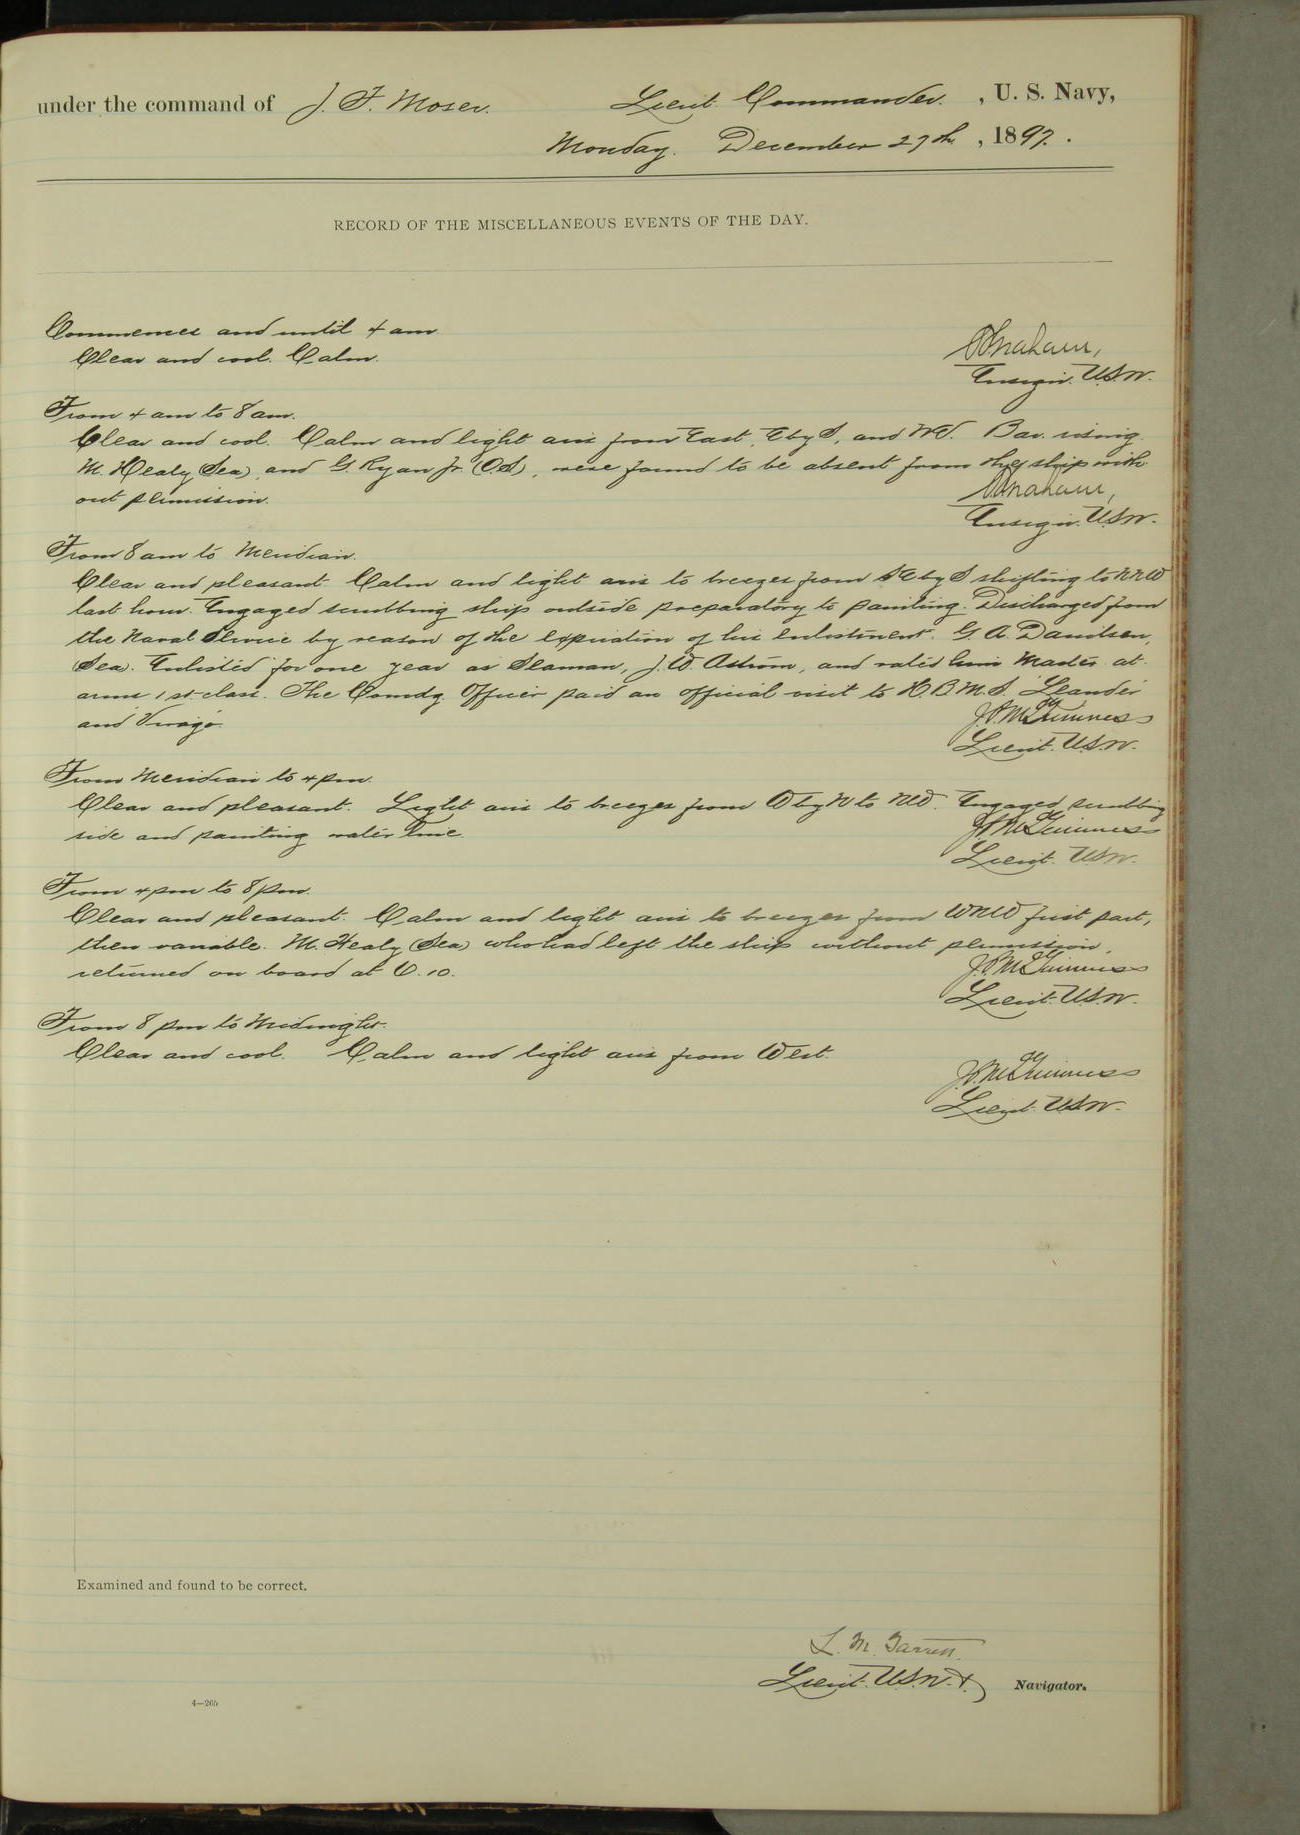 under the command of J. F. Moser. Lieut. Commander. , U. S. Navy,
Monday. December 27th , 1897.
RECORD OF THE MISCELLANEOUS EVENTS OF THE DAY.
Commences and until 4 am
Clear and cool. Calm.
Ensign. U.S.N.
From 4 am to 8 am.
Clear and cool. Calm and light airs from East, E by S, and NW. Bar. rising.
M. Healy (Sea), and G. Ryan Jr. (O.S), were found to be absent from the ship with
out permission.
Ensign. U.S.N.
From 8 am to Meridian.
Clear and pleasant. Calm and light airs to breezes from SE by S shifting to NNW
last hour. Engaged scrubbing ship outside preparatory to painting. Discharged from
the Naval Service by reason of the expiration of his enlistment. G. A. Danilsen,
(Sea). Enlisted for one year as Seaman, J. W. Astrom, and rated him Master at
arms 1st class. The Comdg. Officer paid an official visit to H.B.M.S. Leander
and Virago.
J. P. McGuinness
Lieut. U.S.N.
From Meridian to 4 pm.
Clear and pleasant. Light airs to breezes from W by N to NW. Engaged scrubbing
side and painting water line.
J. P. McGuinness
Lieut. U.S.N.
From 4 pm to 8 pm.
Clear and pleasant. Calm and light airs to breezes from WNW first part,
then variable. M. Healy (Sea) who had left the ship without permission,
returned on board at 6.10.
J. P. McGuinness
Lieut. U.S.N.
From 8 pm to Midnight.
Clear and cool. Calm and light airs from West.
J. P. McGuinness
Lieut. U.S.N.
Examined and found to be correct.
L. M. Garrett.
Lieut. U.S.N. & Navigator.
4—265